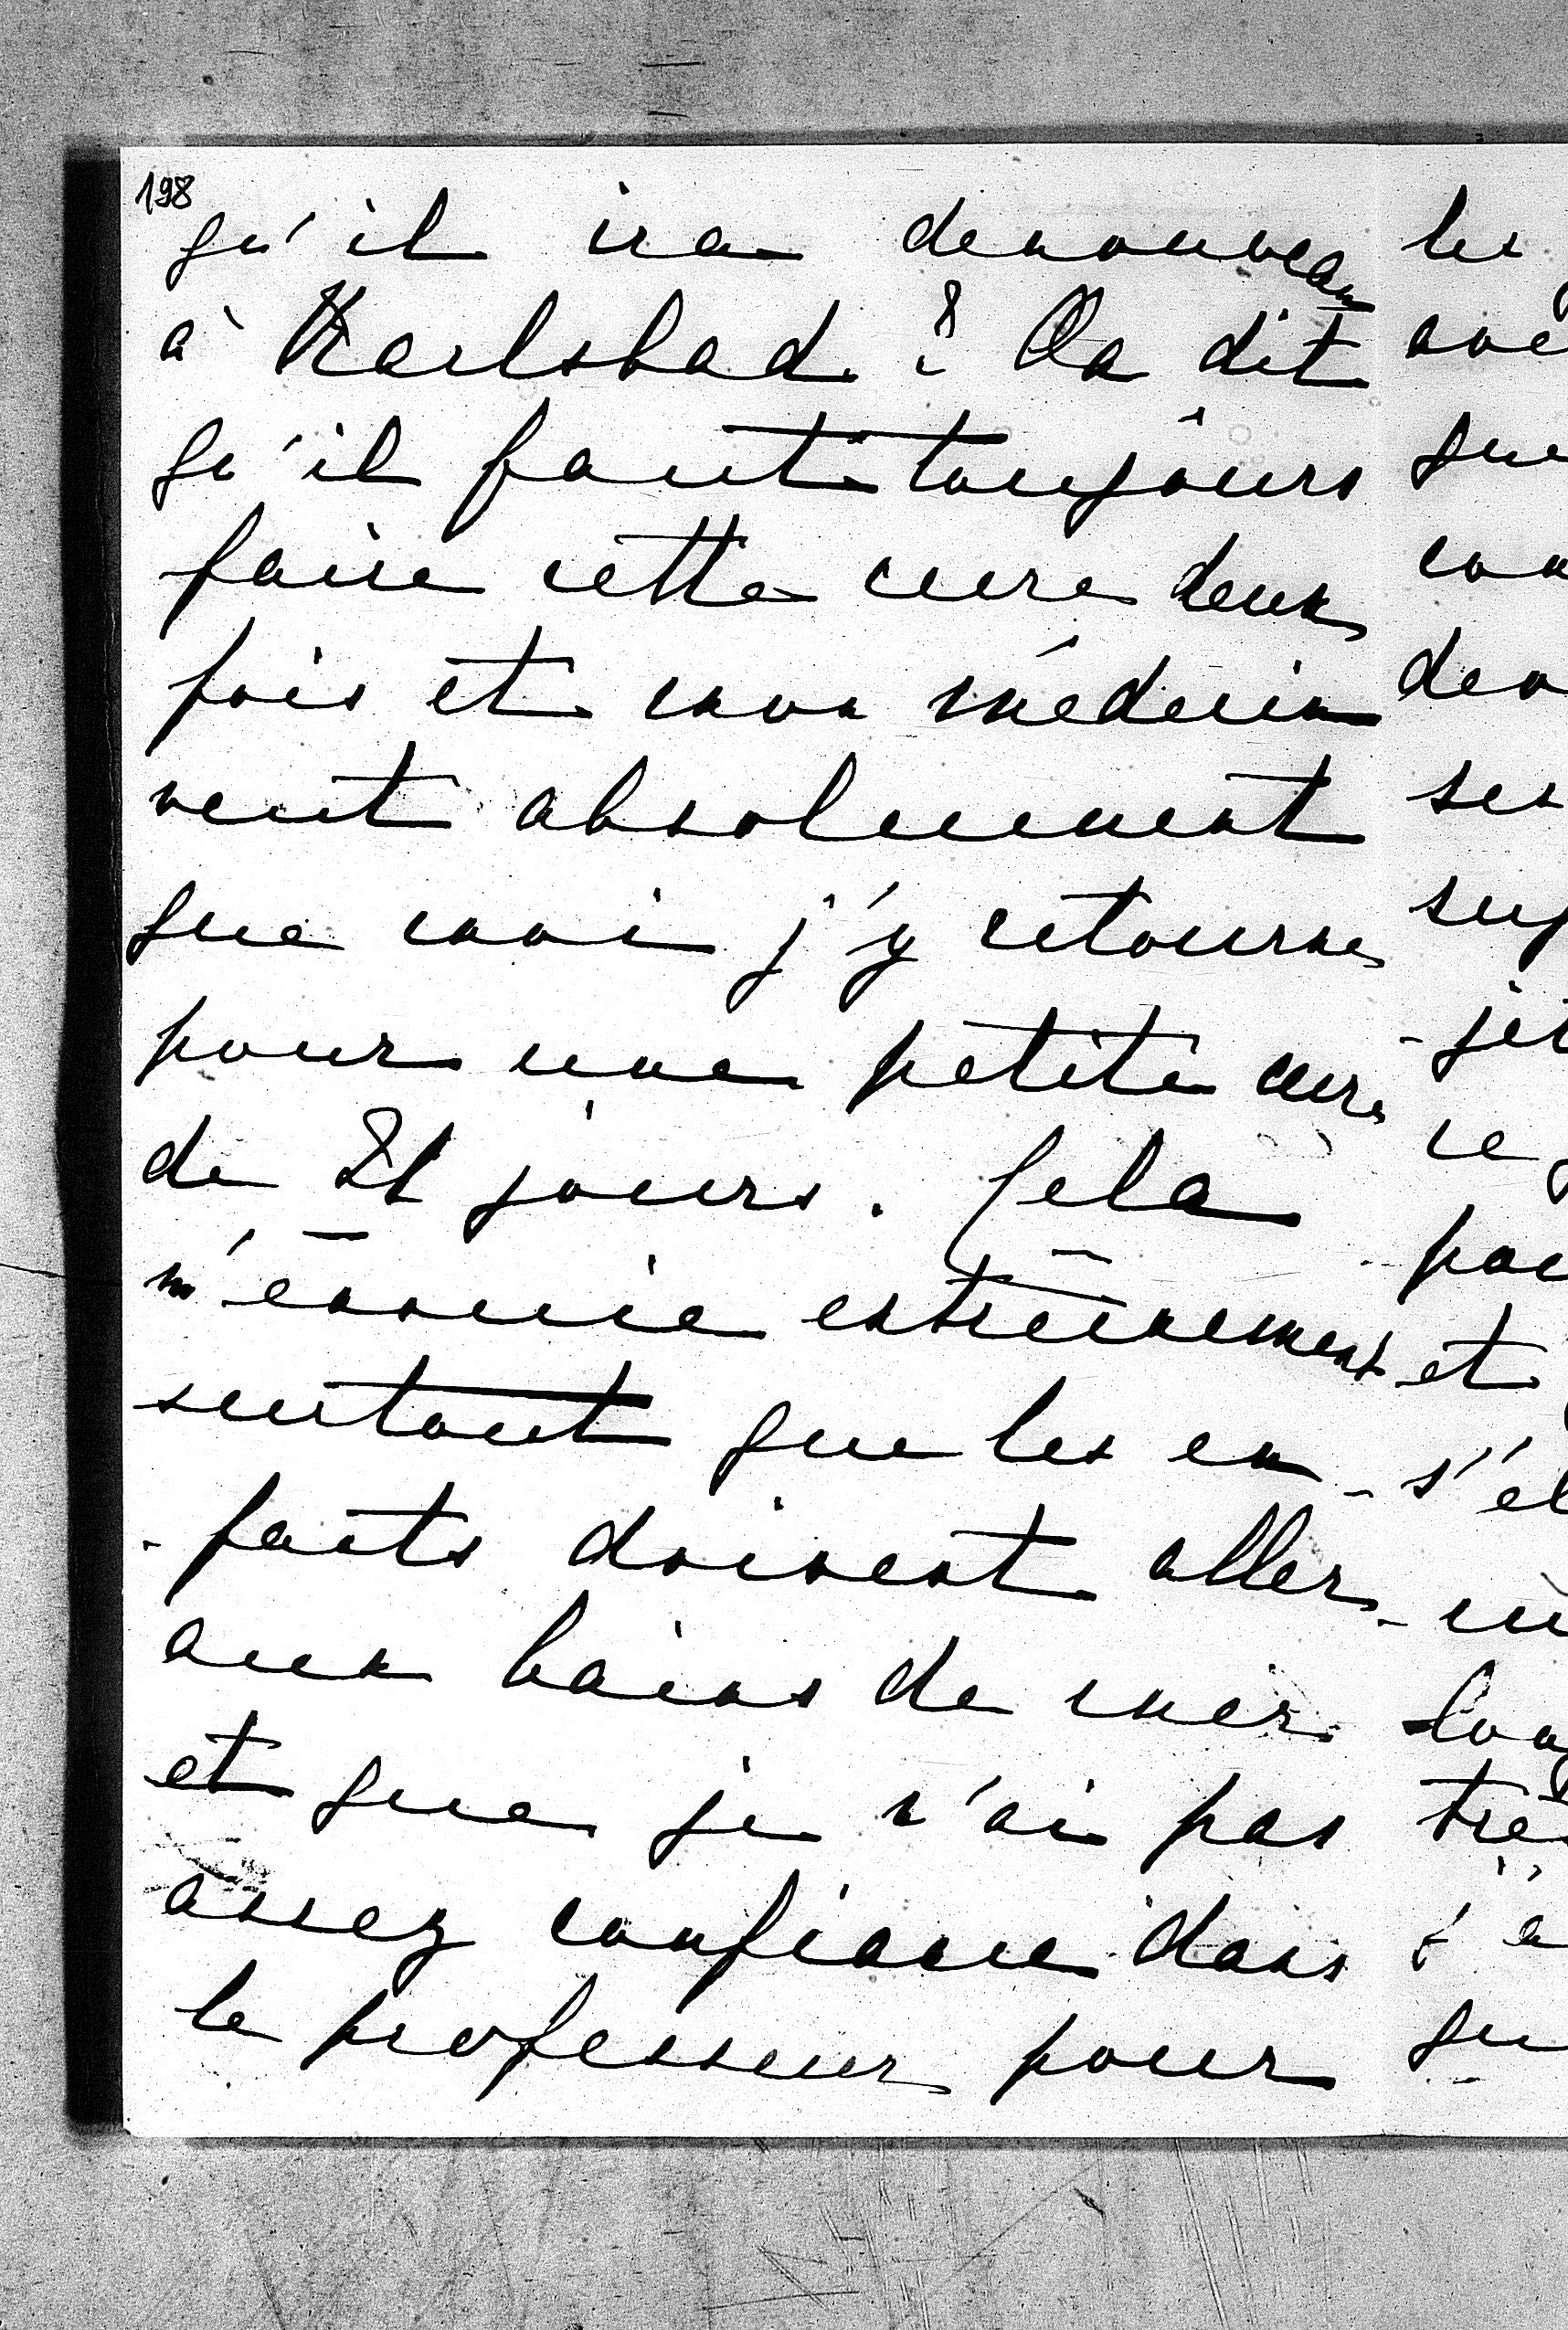 198
qu'il ira denouveau
à Karlsbad? On dit
qu'il faut toujours
faire cette cure deux
fois et mon médecin
veut absolument
que moi j'y retourne
pour une petite cure
de 21 jours. Cela
m'ennuie extrêmement
surtout que les en-
-fants doivent aller
aux bains de mer
et que je n'ai pas
assez confiance dans
le professeur pour
les
que
ses
ce
et